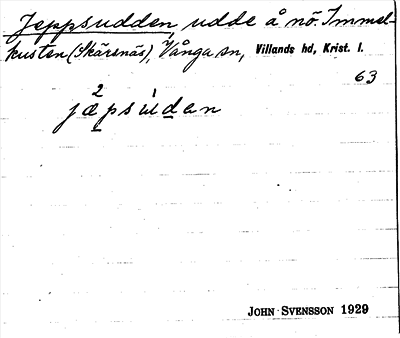 Jeppsudden, udde å nö. Immel-
kusten (Skärsnäs), Vånga sn, Villands hd, Krist. l.
63
2
jæpsúdan
JOHN SVENSSON 1929